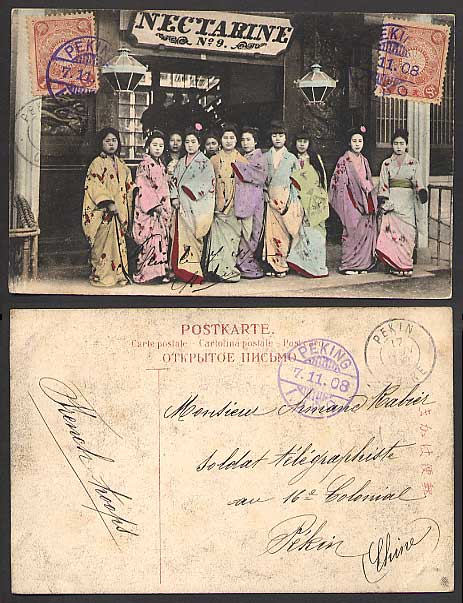 NECTARINE
No 9.
PEKING
7.11.08
PEKING
11.08
PEKIN
POSTKARTE.
Carte postale - Cartolina postale - Post card
ОТКРЫТОЕ ПИСЬМО
PEKING
7.11.08
PEKIN
17
Monsieur Armand Rabier
Soldat télégraphiste
au 16e Colonial
Pékin
(Chine)
French troops
きがは便郵